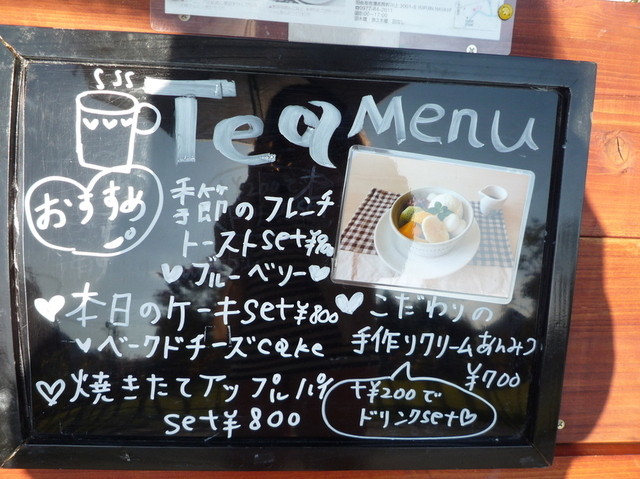 Tea Menu
おすすめ
季節のフレンチ
トーストset
ブルーベリー
本日のケーキset¥800
ベークドチーズcake
焼きたてアップルパイ
set¥800
こだわりの
手作りクリームあんみつ
¥700
+¥200で
ドリンクset